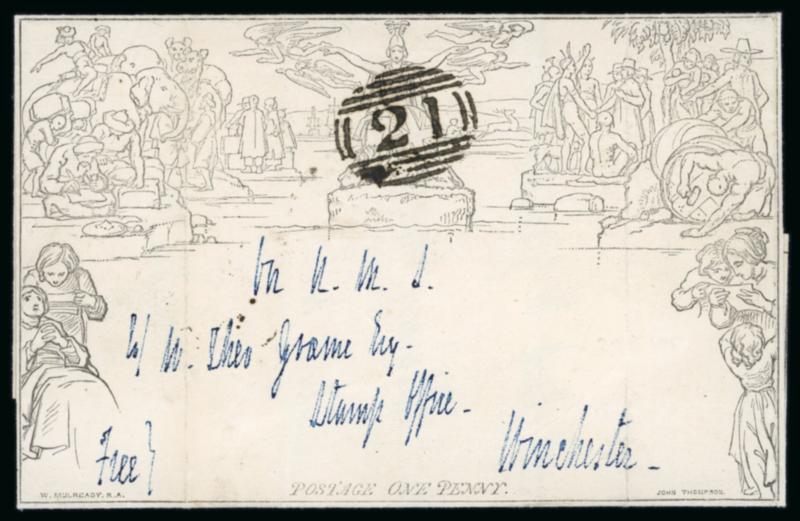 21
On H. M. S.
W. Theo Grame Esq.
Stamp Office.
Winchester.
Free}
W. MULREADY, R.A.
POSTAGE ONE PENNY.
JOHN THOMPSON.